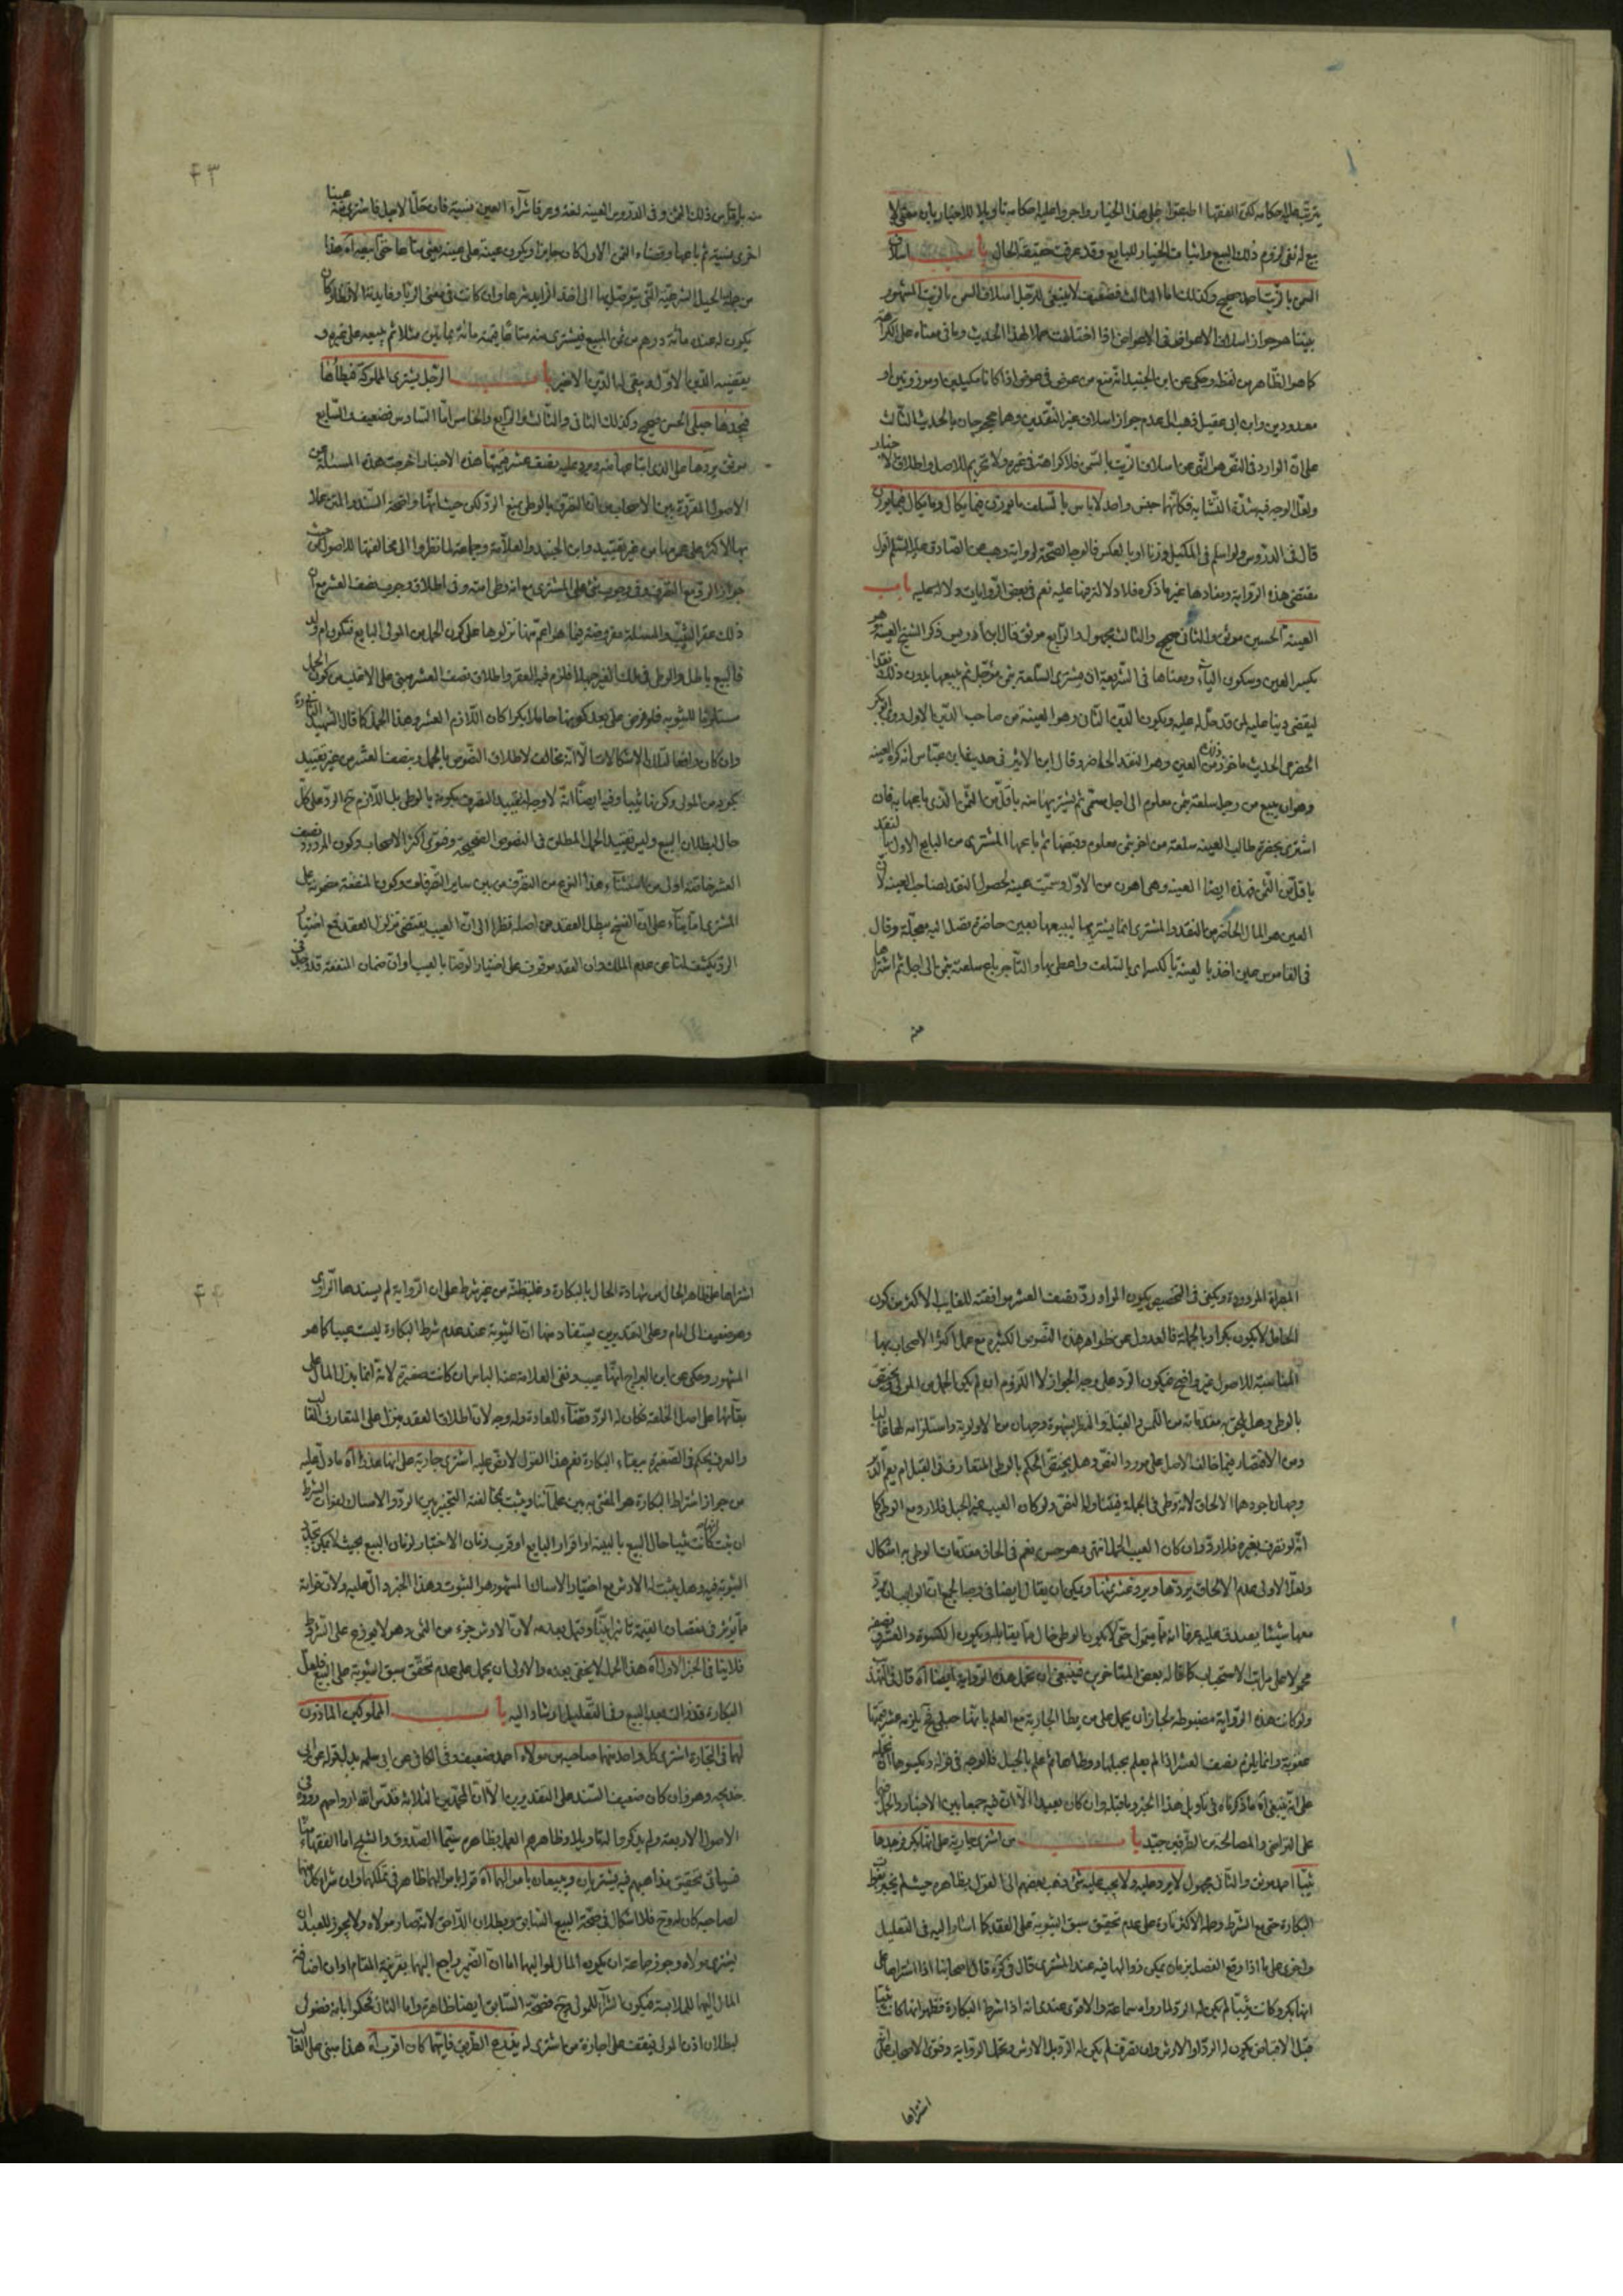 يترتب عليه احكامه لكن الفقهاء اطبقوا على هذا الخيار واجروا عليه احكامه تاويلا للاخبار بان معنى لا
بيع له نفى لزوم ذلك البيع واثبات الخيار للبايع وقد عرفت حقيقة الحال باب اسلاف
السمن بالزيت احمد صحيح وكذلك اما الثالث فضعيف لا ينبغى للرجل اسلاف السمن بالزيت المشهور
بيننا هو جواز اسلاف الاعواض فى الاعواض اذا اختلفت عملا لهذا الحديث وما فى معناه على الكراهة
كما هو الظاهر من لفظه وحكى عن ابن الجنيد انه منع من عوض فى عوض اذا كانا مكيلين او موزونين او
معدودين وابن ابى عقيل ذهب الى عدم جواز اسلاف غير النقدين وهما محجوجان بالحديث الثالث
على ان الوارد فى النص هو النهى عن اسلاف الزيت بالسمن فلا كراهة فى غيره ولا تحريم للاصل واطلاق الاخبار
ولعل الوجه فيه شدة التشابه فكانهما جنس واحد لا باس بالسلف ما يوزن فيما يكال وما يكال فيما يوزن
قال فى الدروس ولو اسلم فى المكيل وزنا او بالعكس فالوجه الصحة لرواية وهب عن الصادق عليه السلم اقول
مقتضى هذه الرواية ومفادها غير ما ذكره فلا دلالة فيها عليه نعم فى بعض الروايات دلالة عليه باب
العينة الحسين موثق والثانى صحيح والثالث مجهول والرابع موثق قال ابن ادريس ذكر الشيخ العينة هو
بكسر العين وسكون الياء ومعناها فى الشريعة ان يشترى السلعة بثمن مؤجل ثم يبيعها بدون ذلك نقدا
ليقضى دينا عليه لمن قد حل له عليه ويكون الدين الثانى وهو العينة من صاحب الدين الاول روى ابو بكر
الحضرمى الحديث ماخوذ ذلك من العين وهو النقد الحاضر وقال ابن الاثير فى حديث ابن عباس انه كره العينه
وهو ان يبيع من رجل سلعة بثمن معلوم الى اجل مسمى ثم يشتريها منه باقل من الثمن الذى باعها به فان
اشترى بحضرة طالب العينه سلعة من اخر بثمن معلوم وقبضها ثم باعها المشترى من البايع الاول بالنقد
باقل من الثمن فهذه ايضا العينه وهى اهون من الاول وسميت عينه لحصول النقد لصاحب العينه لان
العين هو المال الحاضر من النقد والمشترى انما يشتريها ليبيعها بعين حاضرة تصل اليه معجلة وقال
فى القاموس عين اخذ بالعينة بالكسر اى بالسلف واعطى بها والتاجر باع سلعته بثمن الى اجل ثم اشتراها
منه
٤٣
منه باقل من ذلك الثمن وفى الدروس العينه لغة وعرفا شراء العين نسية فان حل الاجل فاشترى منه عينا
اخرى بنسية ثم باعها وقضاه الثمن الاول كان جايزا ويكون عينة على عينه يعنى متاعا حتى يبيعه اه هذا
من جملة الحيل الشرعية التى يتوصل بها الى اخذ الزايد شرعا وان كانت فى معنى الربا وفايدة الاقتضاء كان
يكون له عنده مائة درهم من ثمن المبيع فيشترى منه متاعا قيمته مائة بمايتين مثلا ثم يبيعه على غيره و
يقضيه الدين الاول ويبقى له الدين الاخير باب الرجل يشترى المملوكة فيطأها
فيجدها حبلى الحسن صحيح وكذلك الثانى والثالث والرابع والخامس اما السادس فضعيف والسابع
موثق يردها على الذى ابتاعها منه ويرد عليه نصف عشر قيمتها هذه الاخبار اخرجت هذه المسئلة عن
الاصول المقررة بين الاصحاب من ان التصرف بالوطى يمنع الرد لكن حيث انها واضحة السند والمتن عملا
بها الاكثر على عمومها من غير تقييد وابن الجنيد والعلامة وجماعة لما نظروا الى مخالفتها للاصول من حيث
جواز الرد مع التصرف وفى وجوب شئ على المشترى مع انه وطى امته وفى اطلاق وجوب نصف العشر مع ان
ذلك عقر الثيب والمسئلة مفروضة فيما هو اعم منها نزلوها على كون الحمل من المولى البايع فتكون ام ولد
فالبيع باطل والوطى فى ملك الغير جهلا فلزم فيه العقر واطلاق نصف العشر مبنى على الاغلب من كون الحمل
مستلزما للثيوبه فلو فرض على بعد كونها حاملا بكرا كان اللازم العشر وهذا الحمل كما قال الشهيد الثانى ره
وان كان دافعا لتلك الاشكالات الا انه مخالف لاطلاق النصوص بالحمل وبنصف العشر من غير تقييد
بكونه من المولى وكونها ثيبا وفيه ايضا انه لا وجه لتقييد التصرف بكونه بالوطى بل اللازم ح الرد على كل
حال لبطلان البيع وليس تقييد الحمل المطلق فى النصوص الصحيحة وفتوى اكثر الاصحاب وكون المردود نصف
العشر خاصة اولى من استثناء هذا النوع من التصرف من بين ساير التصرفات وكون المنفعة مضمونة على
المشترى اما بناء على ان الفسخ يبطل العقد من اصله نظرا الى ان العيب يقتضى تزلزل العقد فمع اختيار
الرد يكشف لنا عن عدم الملك وان العقد موقوف على اختيار الرضا بالعيب او ان ضمان المنفعة
المجراة المردودة ويكفى فى التخصيص بكون المراد رد نصف العشر موافقته للغالب الاكثر من كون
الحامل لا يكون بكرا وبالجملة فالعدول عن ظواهر هذه النصوص الكثيرة مع عمل اكثر الاصحاب بها
المناسبة للاصول غير واضح فيكون الرد على وجه الجواز لا اللزوم ان لم يكن الحمل من المولى ويختص
بالوطى وهل يلحق به مقدماته من اللمس والقبلة والنظر بشهوة وجهان من الاولوية واستلزامه لها غالبا
ومن الاقتصار فيما خالف الاصل على مورد النص وهل يختص الحكم بالوطى المتعارف فى القبل ام يعم الدبر
وجهان اجودهما الالحاق لانه وطى فى الجملة فيتناوله النص ولو كان العيب غير الحبل فلا رد مع الوطى كما
انه لو تصرف بغيره فلا رد وان كان العيب الحمل انتهى وهو حسن نعم فى الحاق مقدمات الوطى به اشكال
ولعل الاولى عدم الالحاق يردها ويرد عشر ثمنها ويمكن ان يقال ايضا فى وجه الجمع ان الواجب ان يرد
معها شيئا يصدق عليه عرفا انه مما يتمول حتى لا يكون الوطى خال مما يقابله ويكون الكسوة والعشر ونصفه
محمولا على مراتب الاستحباب كما قاله بعض المتاخرين فينبغى ان تحمل هذه الرواية ايضا اه قال فى التهذيب
ولو كانت هذه الرواية مضبوطه لجاز ان يحمل على من يطا الجارية مع العلم بانها حبلى فح يلزمه عشر قيمتها
عقوبة وانما يلزم نصف العشر اذا لم يعلم بحبلها ووطاها ثم علم بالحبل فالوجه فى قوله ويكسوها ان تحمله
على انه ينبغى اه ما ذكرناه فى تاويل هذا الخبر وما قبله وان كان بعيدا الا ان فيه جمعا بين الاخبار والحمل
على التراضى والمصالحة من الطرفين جيد باب من اشترى جارية على انها بكر فوجدها
ثيبا احمد موثق والثانى مجهول لا يرد عليه ولا يجب عليه شئ ذهب بعضهم الى القول بظاهره حيث لم يخير بفوات
البكارة حتى مع الشرط وحمله الاكثر تارة على عدم تحقيق سبق الثيوبة على العقد كما اشار اليه فى التعليل
واخرى على ما اذا وقع الفصل بزمان يمكن زوالها فيه عند المشترى قال فى كره قال اصحابنا اذا اشتراها على
انها بكر وكانت ثيبا لم يكن له الرد لما رواه سماعة والاقوى عندى انه اذا شرط البكارة فظهر انها كانت ثيبا
قبل الاقباض يكون له الرد او الارش وان تصرف لم يكن له الرد بل الارش وتحمل الرواية وفتوى الاصحاب على انه
اشتراها
٤٤
اشتراها على ظاهر الحال من شهادة الحال بالبكارة وغلبة ظنه من غير شرط على ان الرواية لم يسندها الراوى
وهو ضعيف الى امام وعلى التقديرين يستفاد منها ان الثيوبة عند عدم شرط البكارة ليست عيبا كما هو
المشهور وحكى عن ابن البراج انها عيب ونفى العلامة عنه الباس ان كانت صغيرة لانه انما بذل المال على
بقائها على اصل الخلقة فكان له الرد قضاء للعادة وله وجه لان اطلاق العقد ينزل على المتعارف الغالب
والعرف يحكم فى الصغيرة ببقاء البكارة نعم هذا القول لا نص عليه اشترى جارية على انها عذراء اه ما دل عليه
من جواز اشتراط البكارة هو المفتى به بين علمائنا ويثبت بمخالفته التخيير بين الرد والامساك لفوات الشرط
ان ثبت انها كانت ثيبا حال البيع بالبينة او اقرار البايع او قرب زمان الاختبار لزمان البيع بحيث لا يمكن تجدد
الثيوبة فيه وهل يثبت له الارش مع اختيار الامساك المشهور هو الثبوت وهذا الخبر دال عليه ولان فواته
مما يؤثر فى نقصان القيمة تاثيرا بينا وقيل بعدمه لان الارش جزء من الثمن وهو لا يوزع على الشروط
فلا ينافى الخبر الاول اه هذا الحمل لا يخفى بعده والاولى ان يحمل على عدم تحقق سبق الثيوبة على البيع فلعل
البكارة قد زالت بعد البيع وفى التعليل ارشاد اليه باب المملوكين الماذون
لهما فى التجارة اشترى كل واحد منهما صاحبه من مولاه احمد ضعيف وفى الكافى عن ابى سلمه بدل قوله عن ابى
خديجه وهو وان كان ضعيف السند على التقديرين الا ان المحمدين الثلاثة قدس الله ارواحهم رووه فى
الاصول الاربعة ولم يذكروا له تاويلا وظاهرهم العمل بظاهره سيما الصدوق والشيخ اما الفقهاء
فسياتى تحقيق مذاهبهم فيه يشتريان ويبيعان باموالهما اه قوله باموالهما ظاهر فى تملكهما وان شراء كل منهما
لصاحبه كان له وح فلا اشكال فى صحة البيع السابق وبطلان اللاحق لانه صار مولاه ولا يجوز للعبد ان
يشترى مولاه وجوز جماعة ان يكون المال لمواليهما اما ان الضمير راجع اليهما بقرينة المقام او ان اضافة
المال اليهما للملابسة فيكون الشراء للمولى وح فصحة السابق ايضا ظاهرة واما الثانى فحكموا بانه فضولى
لبطلان اذن المولى فيقف على اجازة من اشترى له يفدع الطريق فايهما كان اقرب اه هذا مبنى على الغالب